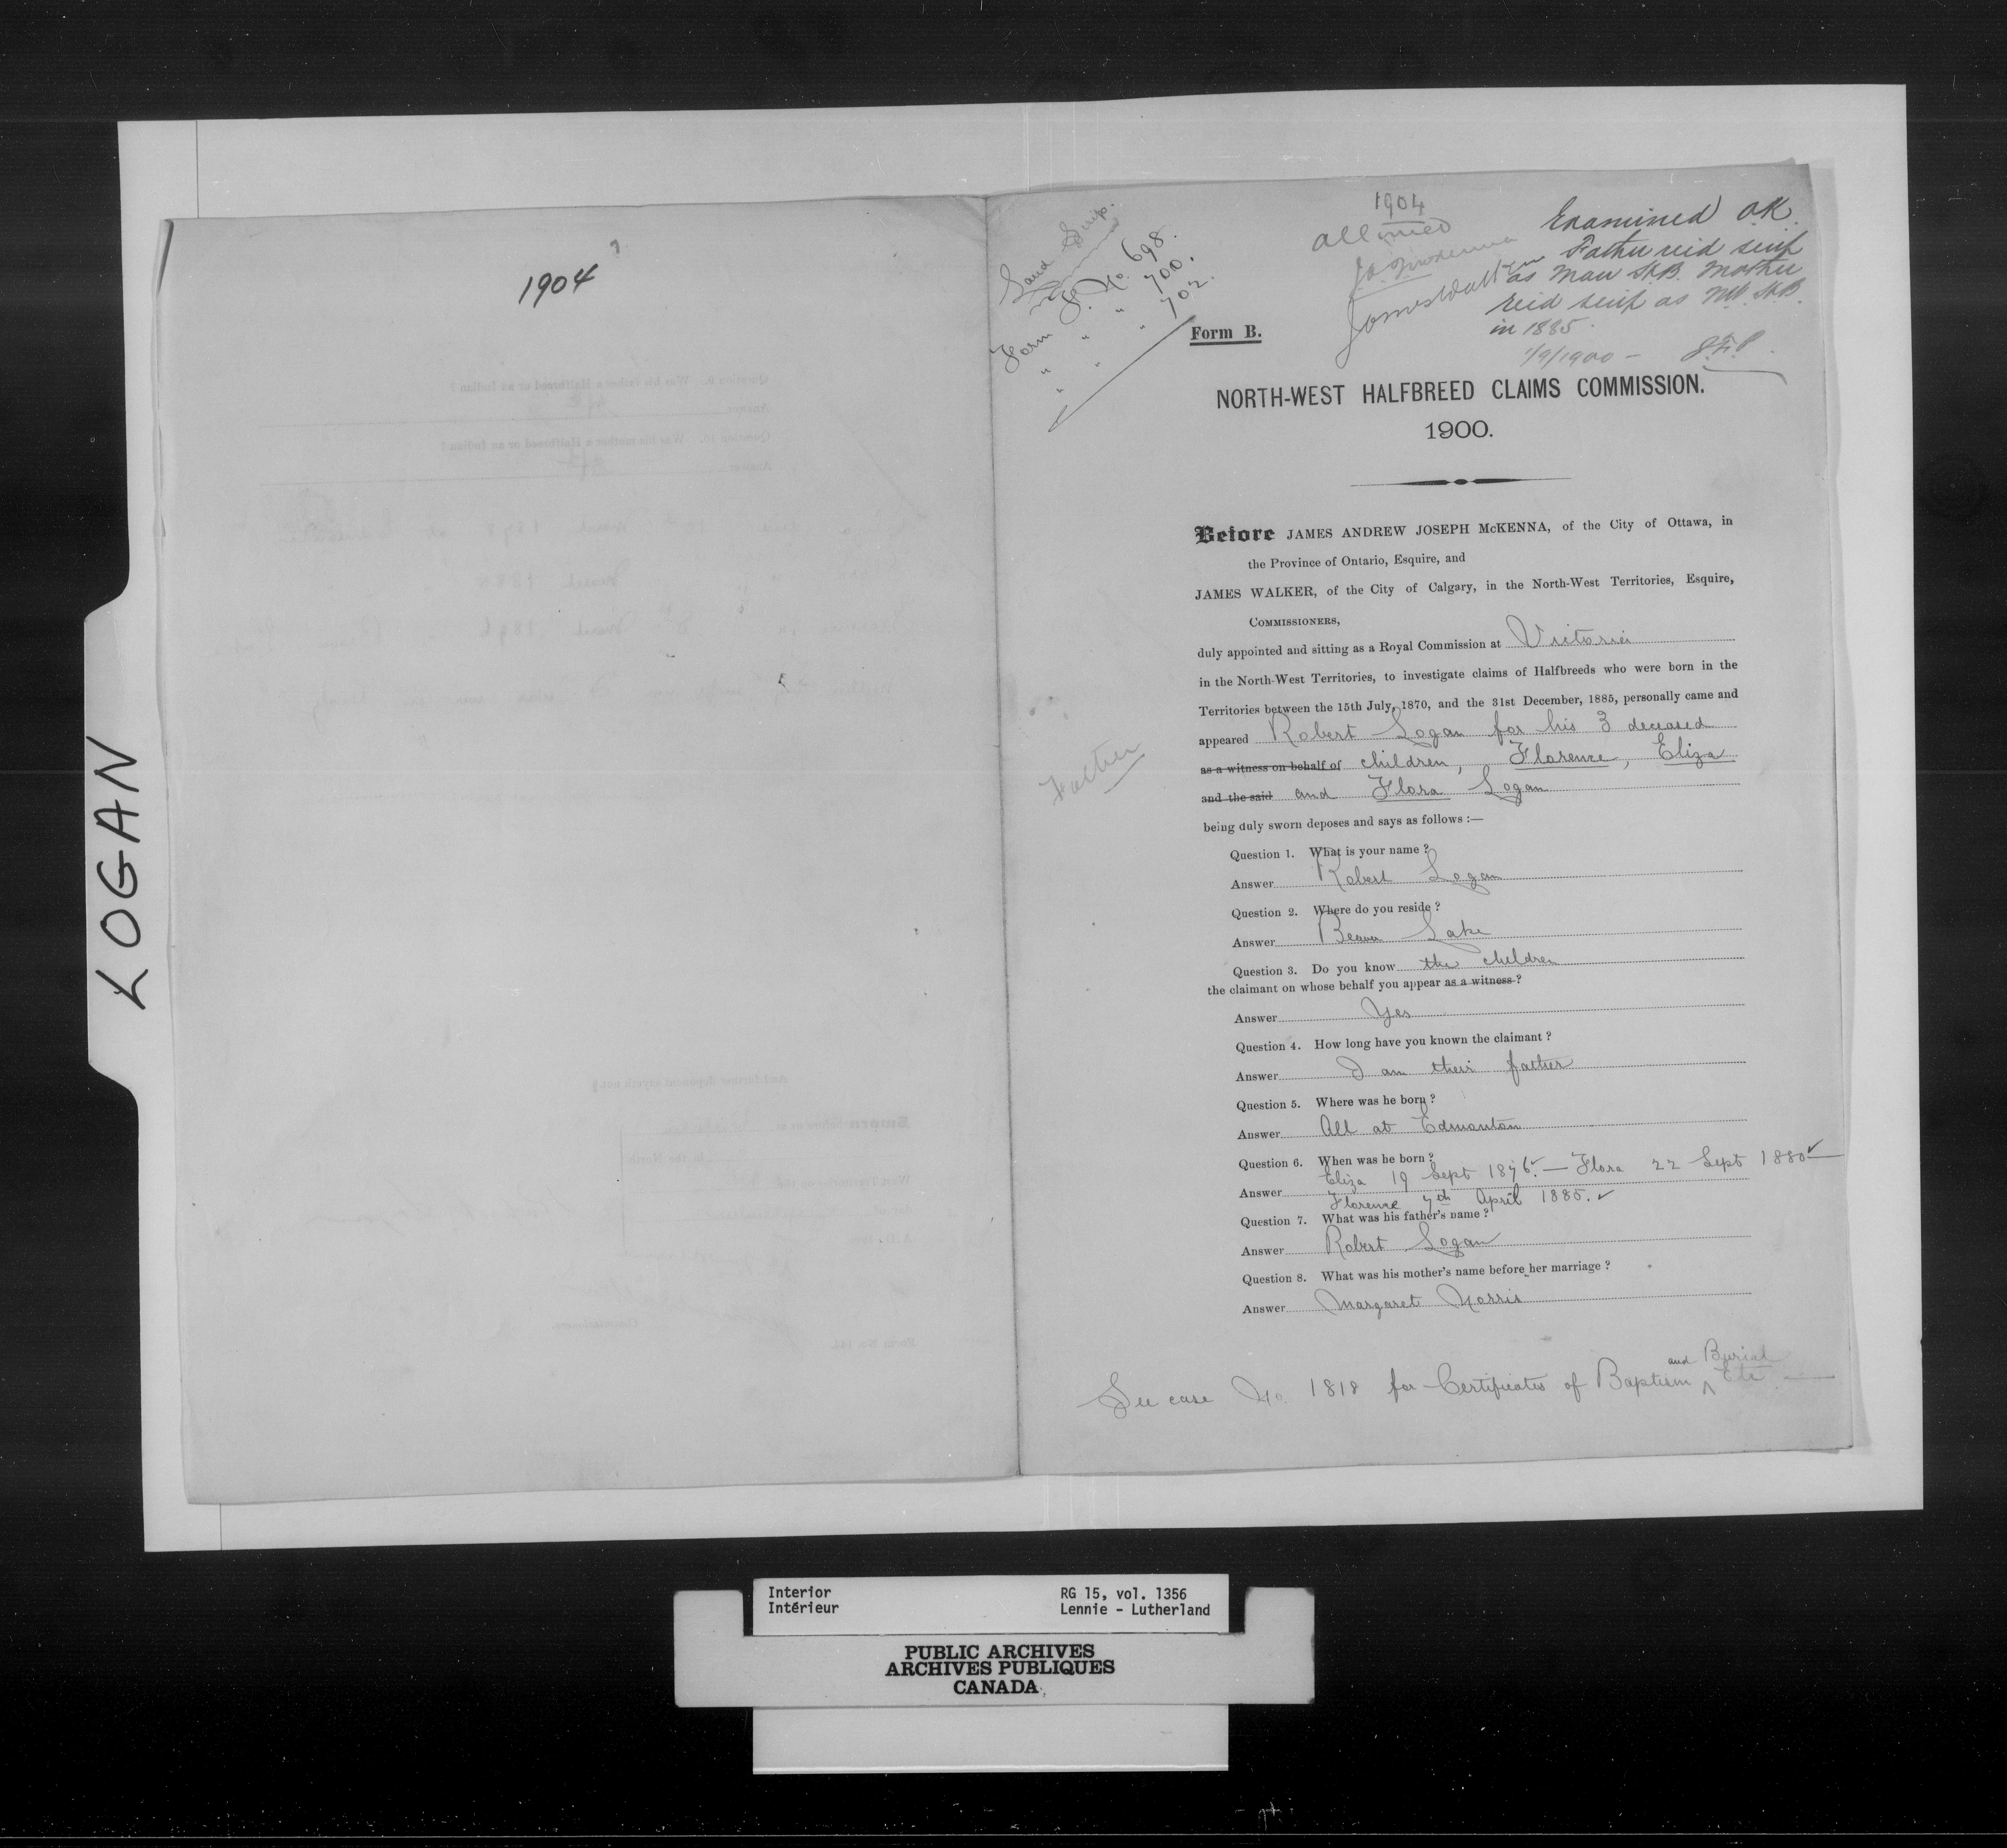 LOGAN
1904
Land Scrip.
Form F. No. 698.
" " " 700.
" " " 702.
1904
Allowed
J.A.J. McKenna
James Walker
Examined OK.
Father recd scrip
as Man H.B. Mother
recd scrip as NW. H.B.
in 1885.
1/9/1900 —
Form B.
NORTH-WEST HALFBREED CLAIMS COMMISSION.
1900.
Before JAMES ANDREW JOSEPH McKENNA, of the City of Ottawa, in
the Province of Ontario, Esquire, and
JAMES WALKER, of the City of Calgary, in the North-West Territories, Esquire,
COMMISSIONERS,
duly appointed and sitting as a Royal Commission at Victoria
in the North-West Territories, to investigate claims of Halfbreeds who were born in the
Territories between the 15th July, 1870, and the 31st December, 1885, personally came and
appeared Robert Logan for his 3 deceased
as a witness on behalf of children, Florence, Eliza
and the said and Flora Logan
Father
being duly sworn deposes and says as follows :—
Question 1. What is your name ?
Answer Robert Logan
Question 2. Where do you reside ?
Answer Beaver Lake
Question 3. Do you know the children
the claimant on whose behalf you appear as a witness ?
Answer Yes
Question 4. How long have you known the claimant ?
Answer I am their father
Question 5. Where was he born ?
Answer All at Edmonton
Question 6. When was he born ?
Eliza 19 Sept 1876. — Flora 22 Sept 1880
Answer Florence 7th April 1885.
Question 7. What was his father's name ?
Answer Robert Logan
Question 8. What was his mother's name before her marriage ?
Answer Margaret Norris
See case No. 1818 for Certificates of Baptism and Burial Etc
Interior
Intérieur
RG 15, vol. 1356
Lennie - Lutherland
PUBLIC ARCHIVES
ARCHIVES PUBLIQUES
CANADA